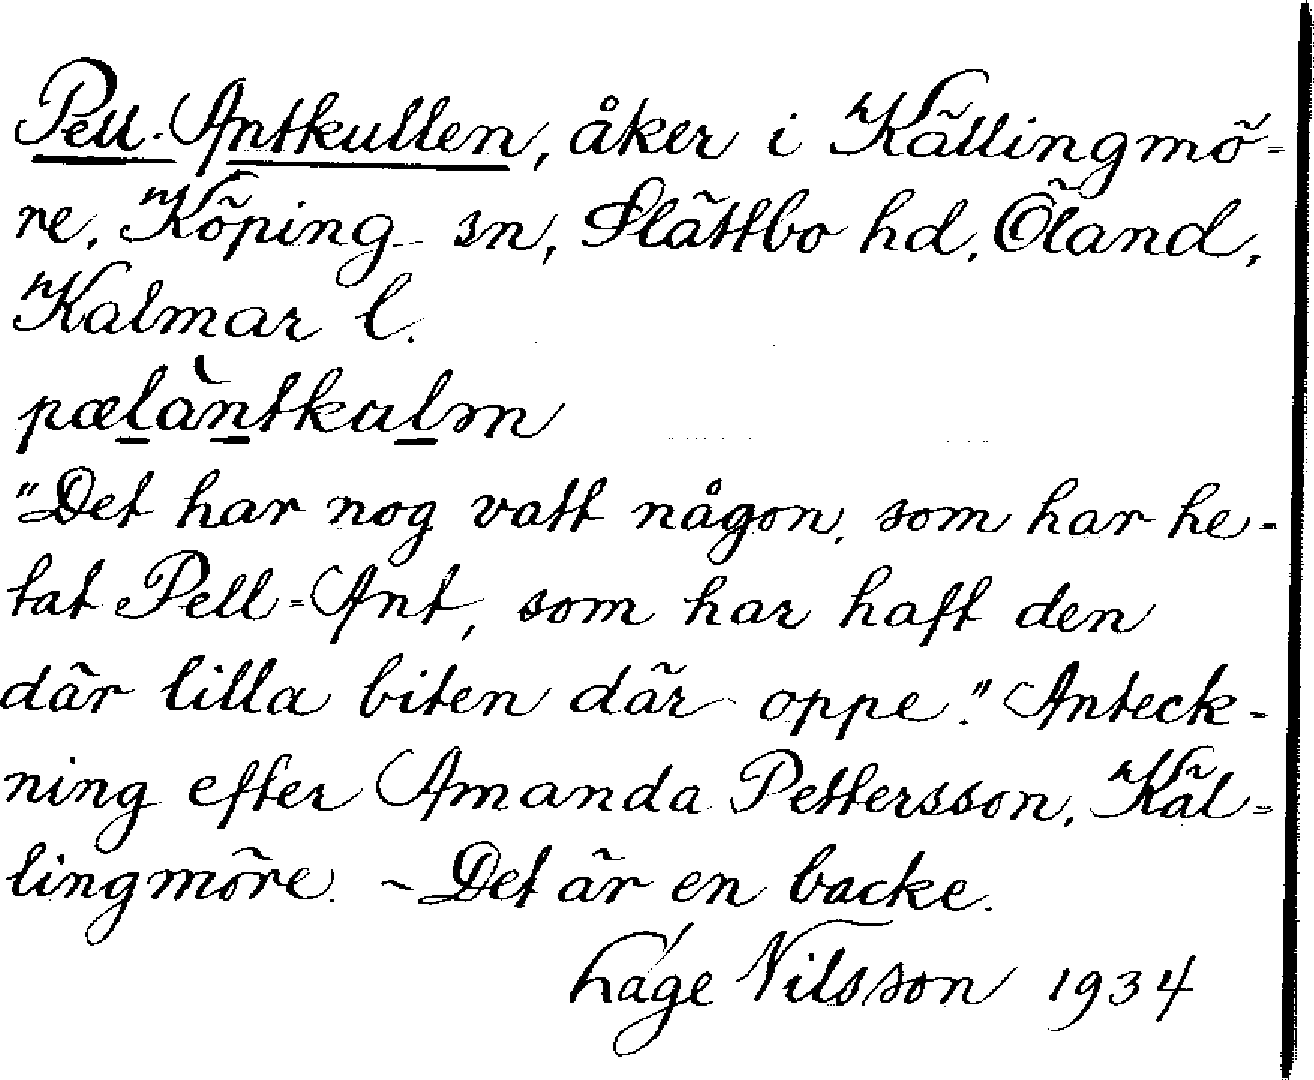 Pell-Antkullen, åker i Källingmö-
re, Köping sn, Slättbo hd, Öland,
Kalmar l.
pælàntkulm
"Det har nog vatt någon, som har he-
tat Pell-Ant, som har haft den
där lilla biten där oppe." Anteck-
ning efter Amanda Pettersson, Käl-
lingmöre. - Det är en backe.
Låge Nilsson 1934